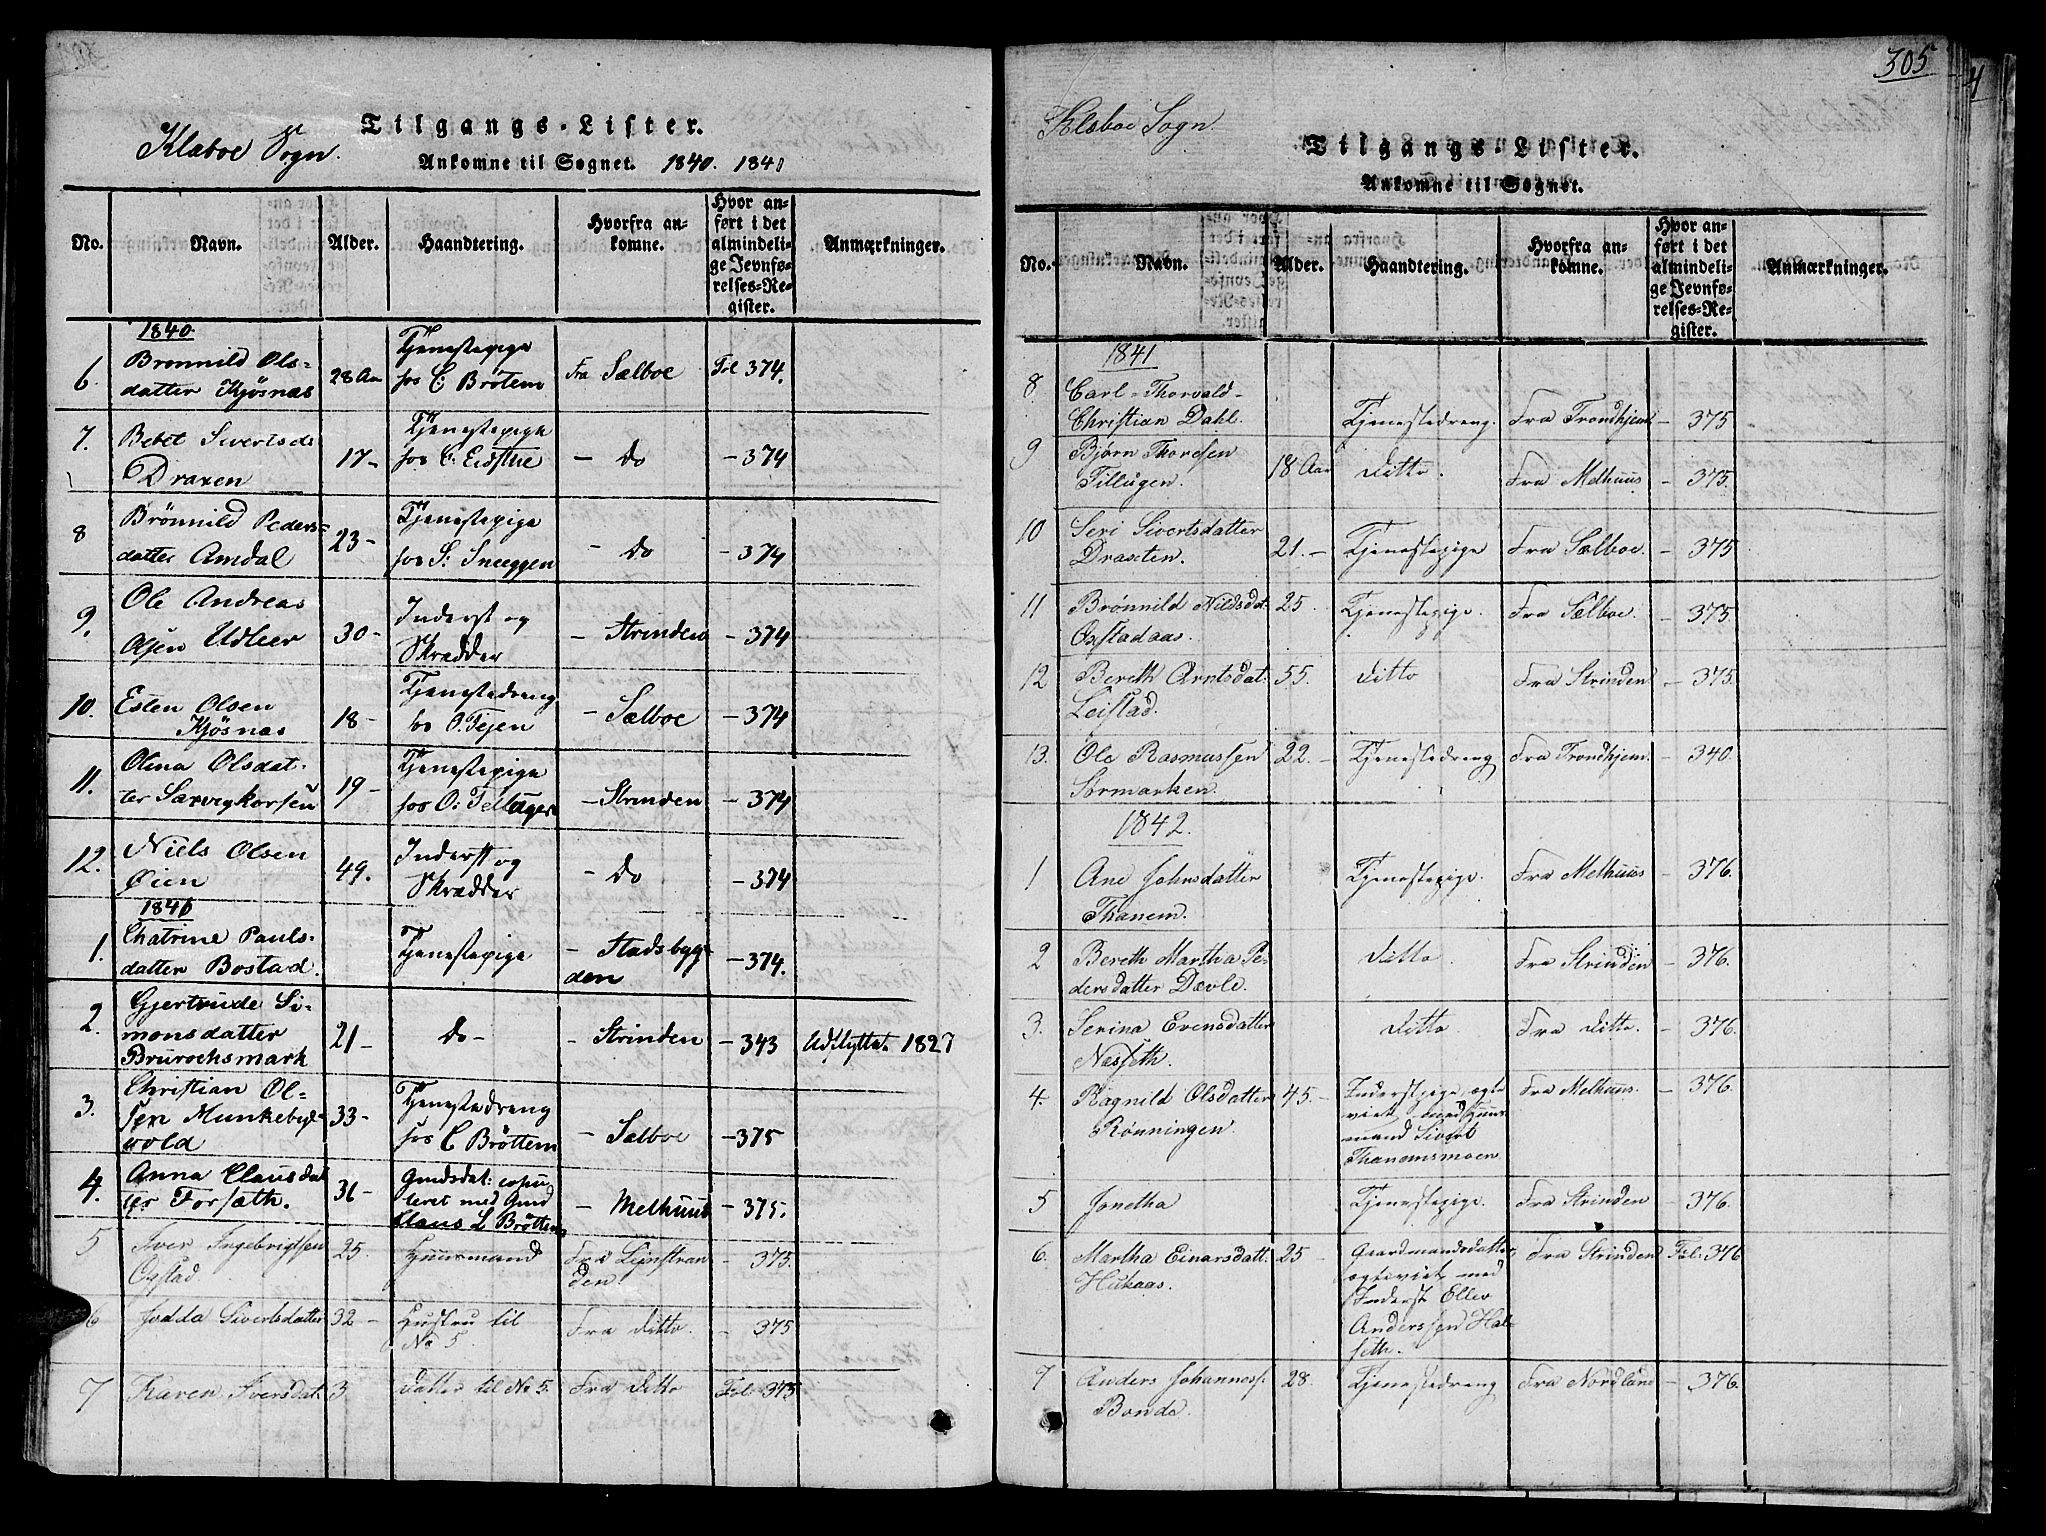 Klæboe Sogn.
Tilgangs-Lister.
Ankomne til Sognet. 1840. 1841
No. Navn. Alder. Haandtering. Hvorfra ankomne. Hvor anført i det almindelige Jevnførelses-Register. Anmærkninger.
1840
6. Brønnild Ols-
datter Kjøsnas 28 Aar Tjenestepige
hos C: Brøtem Fra Sælboe Fol 374.
7. Bebet Sivertsd:
Draxen 17 - Tjenestepige
hos - Do - 374
8 Brönnild Peders-
datter Amdal 23 - Tjenestepige
hos S: Sneeggen - Do - 374
9. Ole Andreas
Udleer 30 - Inderst og
Skrædder - Strinden - 374
10. Esten Olsen
Kjøsnas 18 - Tjenestedreng
hos O. Tejen - Sælboe - 374
11. Olina Olsdat-
ter 19 - Tjenestepige
hos O: - Strinden - 374
12. Niels Olsen
Øien 49. Inderst og
Skrædder - Do - 374
1841
1. Chatrine Pauls-
datter Bostad. Tjenestepige - Stadsbyg-
den - 374.
2. Gjertrude Si-
monsdatter
21 - Do - - Strinden - 343 Udflyttet 1827
3. Christian Ol-
sen Munkebye
vold 33 - Tjenestedreng
hos C Bröttem - Sælboe - 375
4. Anna Clausdat
ter Forsæth. 31 - Gmdsdat: copu
leret med Gmd
Claus L Bröttem - Melhuus - 375.
5 Iver Ingebrigtsen
Ogstad 25. Huusmand Fra Leinstran
den - 375.
6 Jodda Sivertsdatter 32 - Hustru til
No 5. Fra Ditto. - 375
7 Karen Iversdat. 3 Datter til No 5. Fra Ditto Fol. 345
305
Klæboe Sogn.
Tilgangs-Lister.
Ankomne til Sognet.
No. Navn. Alder. Haandtering. Hvorfra ankomne. Hvor anført i det almindelige Jevnførelses-Register. Anmærkninger.
1841
8 Carl-Thorvald-
Christian Dahl. Tjenestedreng. Fra Trondhjem - 375
9 Bjørn Thoresen
Tillugen. 18 Aar Ditto. Fra Melhuus - 375.
10 Seri Sivertsdatter
Draxten. 21. - Tjenestepige Fra Sælboe. - 375
11 Brønnild Nildsdat: 25. Tjenestepige. Fra Sælboe. - 375
aas.
12 Bereth Arntsdat: 55. Ditto Fra Strinden - 375.
Leistad.
13. Ole Rasmussen 22. - Tjenestedreng Fra Trondhjem. - 340.
Sørmarken.
1842.
1 Ane Johnsdatter
Thanem. Tjenestepige. Fra Melhuus - 376.
2 Bereth Martha Pe-
dersdatter Dævle. Ditto. Fra Strinden - 376.
3. Serina Evensdatter
Næsseth. Ditto. Fra Ditto. - 376.
4. Ragnild Olsdatter 45. - Inderstpige ægte
viet med Huus
mand Sivert
Thanemsmoen Fra Melhuus. - 376.
Rønningen.
5 Jonetha Tjenestepige. Fra Strinden - 376.
6. Martha Einarsdatt. 25 - Gaardmandsdatter
ægteviet med
Inderst Ellev
Anderssen Hal-
seth. Fra Strinden Fol: 376
Hukaas.
7 Anders Johanness. 28. Tjenestedreng Fra Nordland - 376.
Bonde.